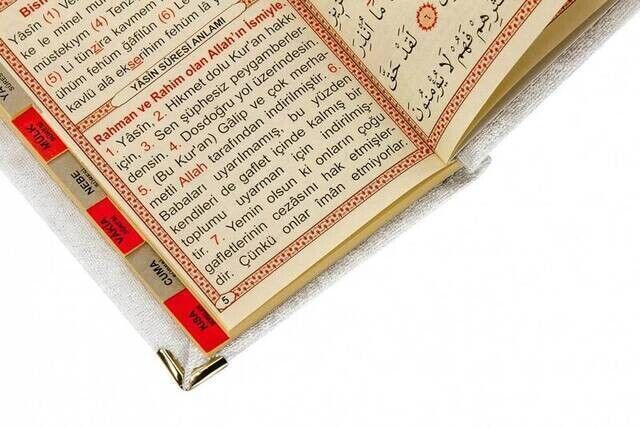 Yâsîn (1) Ve
ke le minel mü
müstekıym (4) Tenz
(5) Li tünzira kavmem
ühüm fehüm ğâfilûn (6) Le
kavlü alâ ekserihim fehüm lâ y
YÂSİN SÛRESİ ANLAMI
Rahman ve Rahim olan Allah'ın ismiyle
1. Yâsîn, 2. Hikmet dolu Kur'an hakkı
için. 3. Sen şüphesiz peygamberler-
densin. 4. Dosdoğru yol üzerindesin.
5. (Bu Kur'an) Gâlip ve çok merha-
metli Allah tarafından indirilmiştir. 6.
Babaları uyarılmamış, bu yüzden
kendileri de gaflet içinde kalmış bir
toplumu uyarman için indirilmiş-
tir. 7. Yemin olsun ki onların çoğu
gafletlerinin cezâsını hak etmişler-
dir. Çünkü onlar îmân etmiyorlar.
5
لَقَدْ حَقَّ
فَهُمْ لَا يُؤْمِنُونَ
MÜLK
NEBE
VAKIA
CUMA
KISA